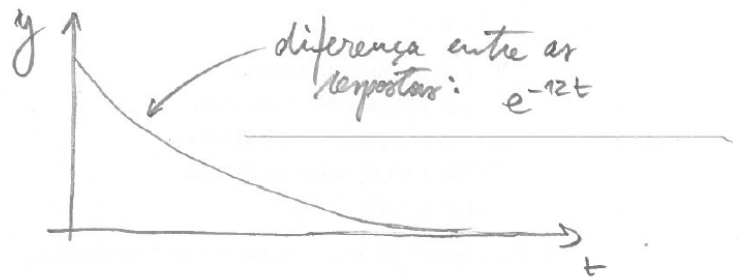 y
diferença entre as
respostas: e^{-12t}
t